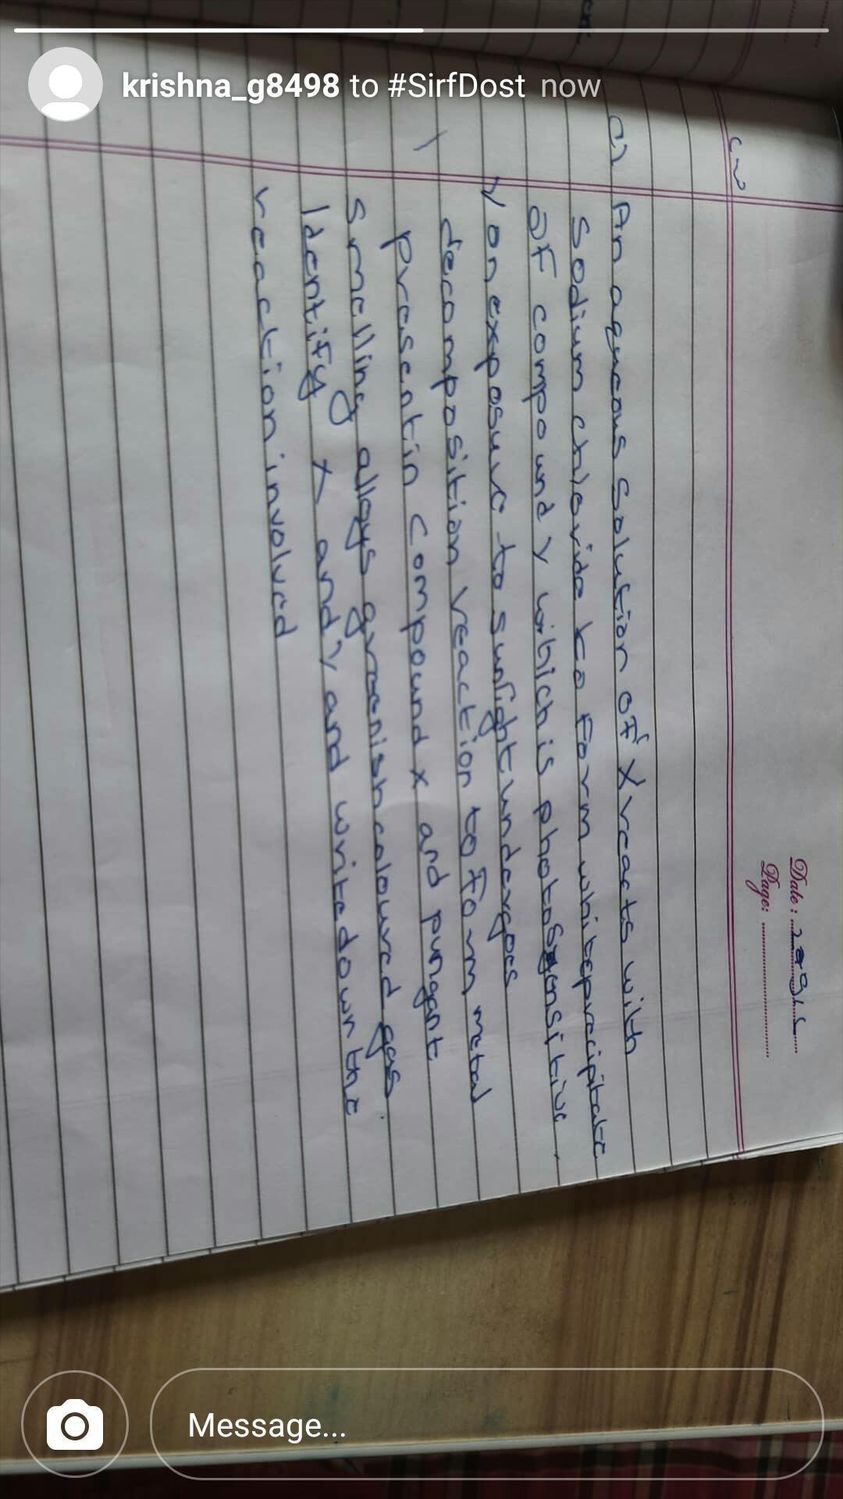 krishna_g8498 to #SirfDost now
CW
Date:
Page:
C) An aqueous solution of X reacts with
sodium chloride to form white precipitate
of compound Y which is photosensitive.
Y on exposure to sunlight undergoes
decomposition reaction to form metal
present in compound X and pungant
smelling allgys greenish coloured gas.
Identify X and Y and write down the
reaction involved
Message...